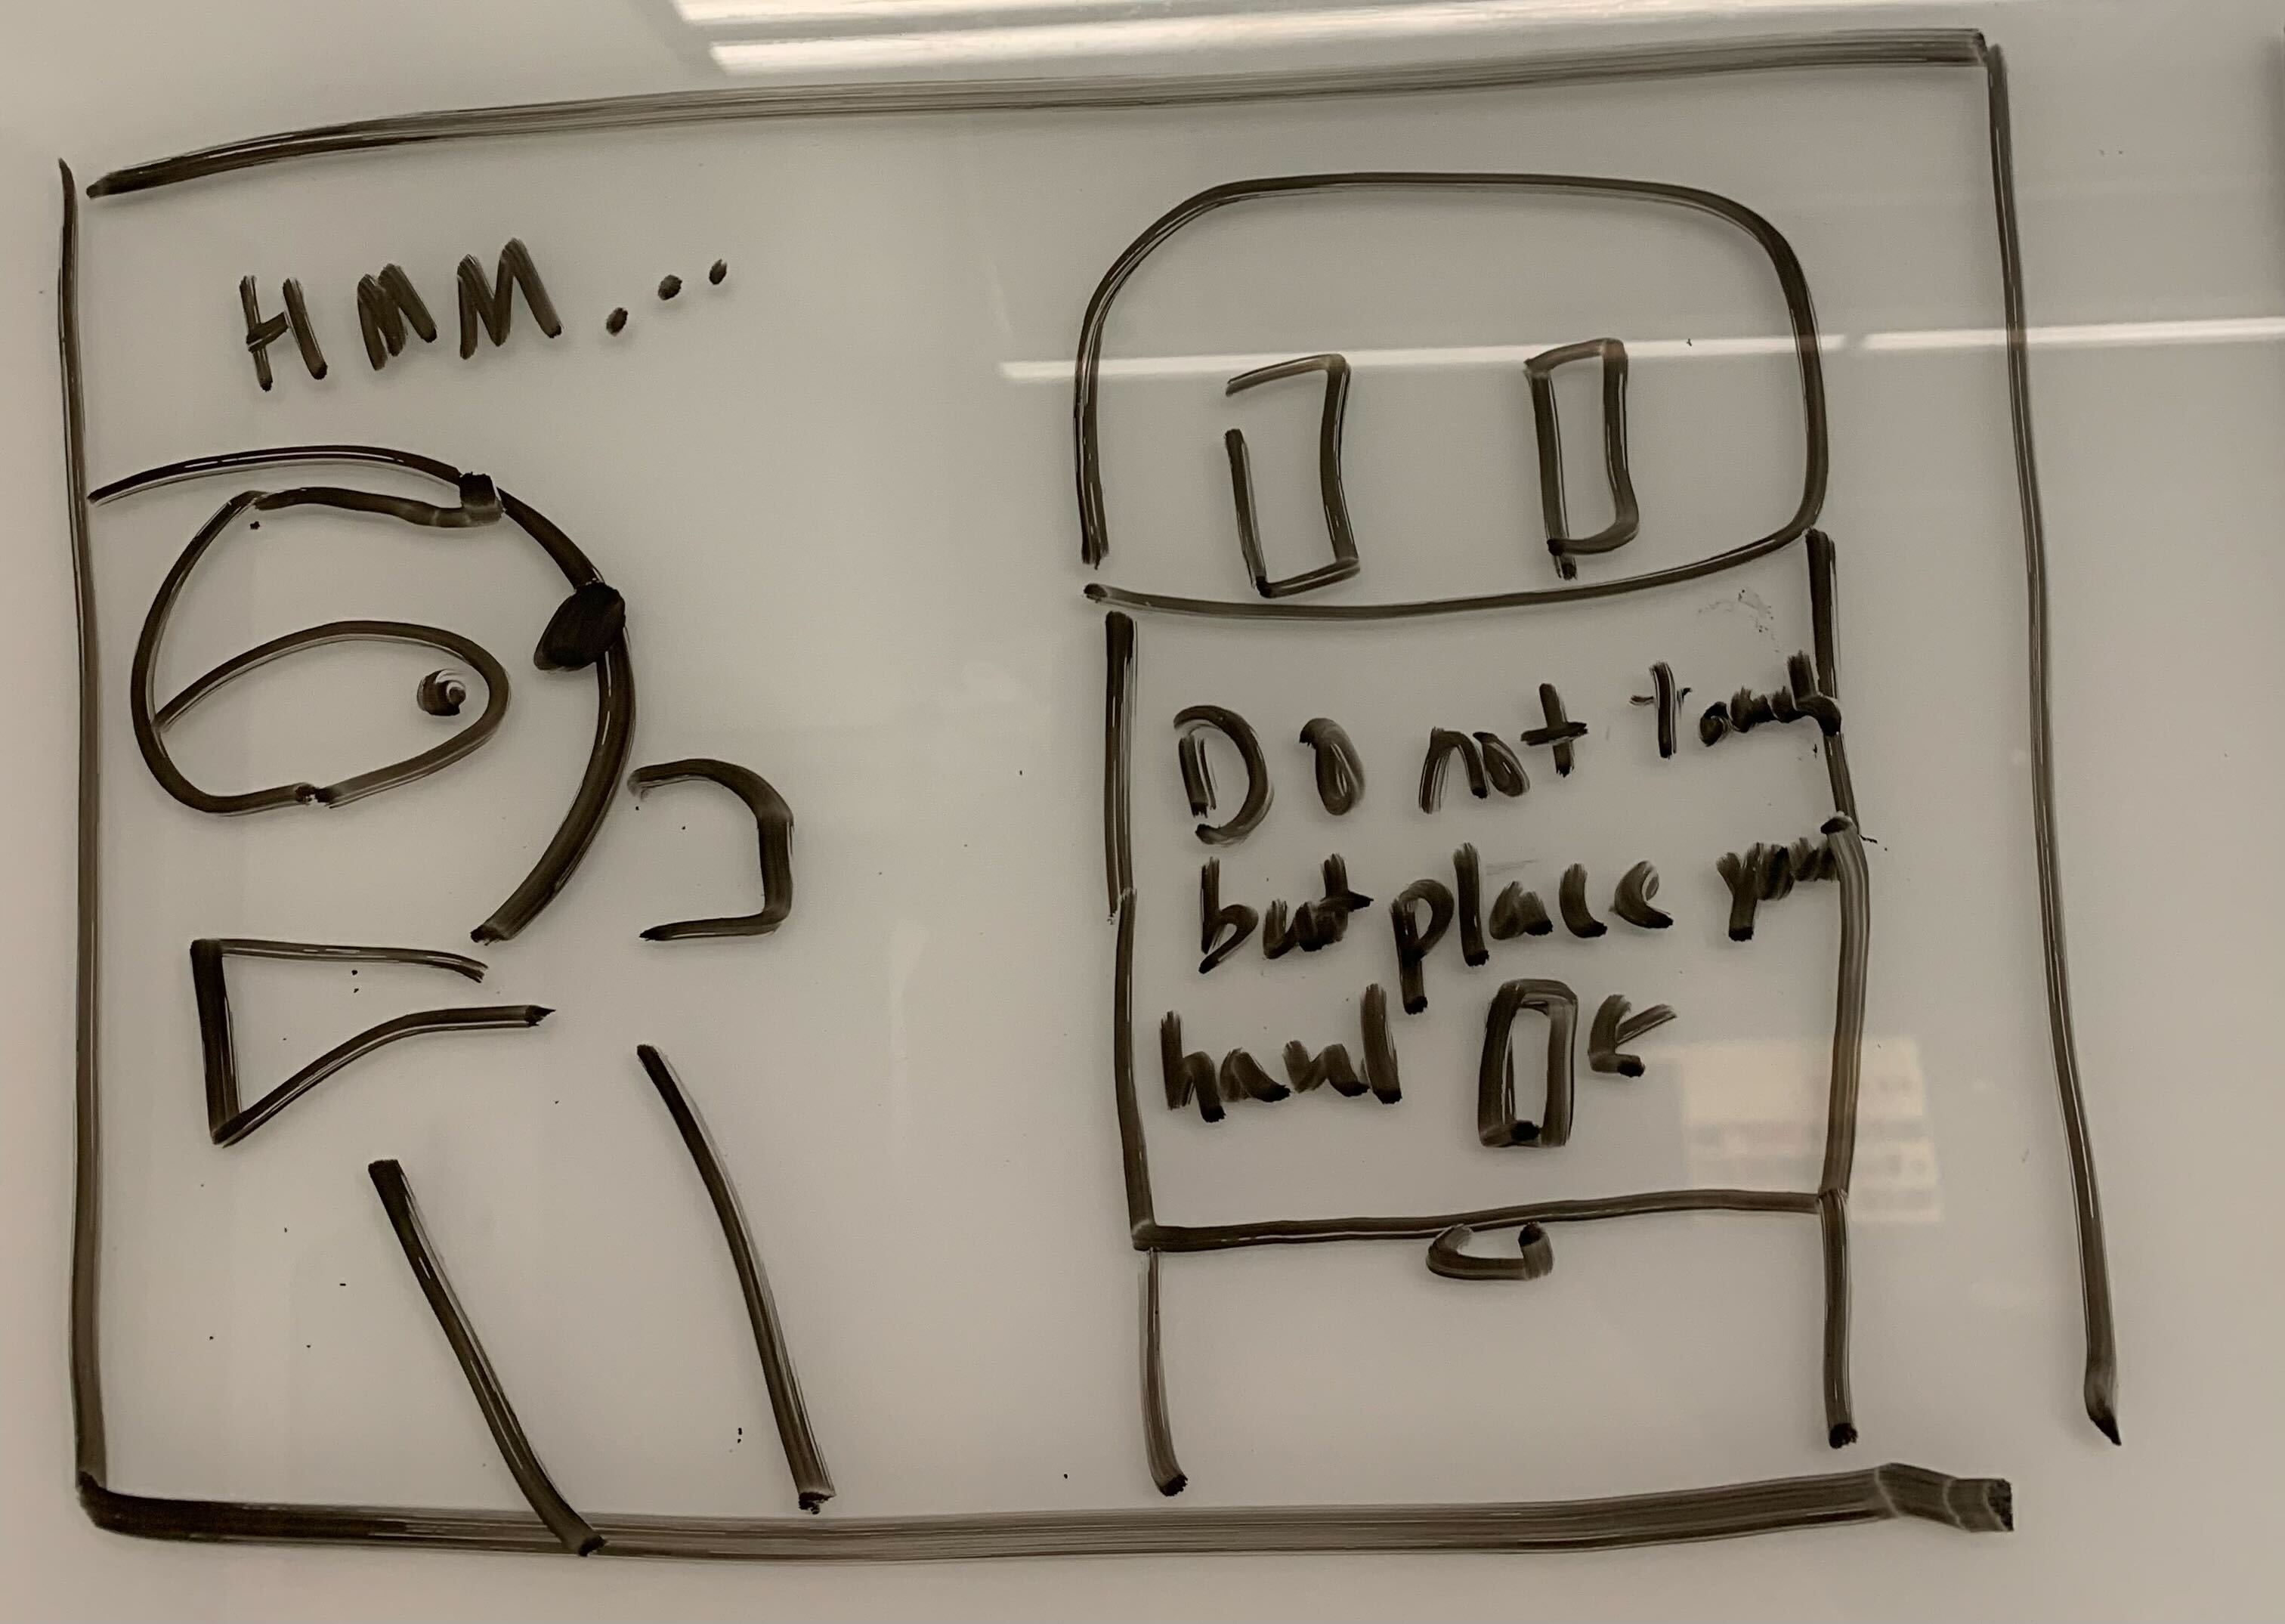 HMM...
Do not touch
but place your
hand